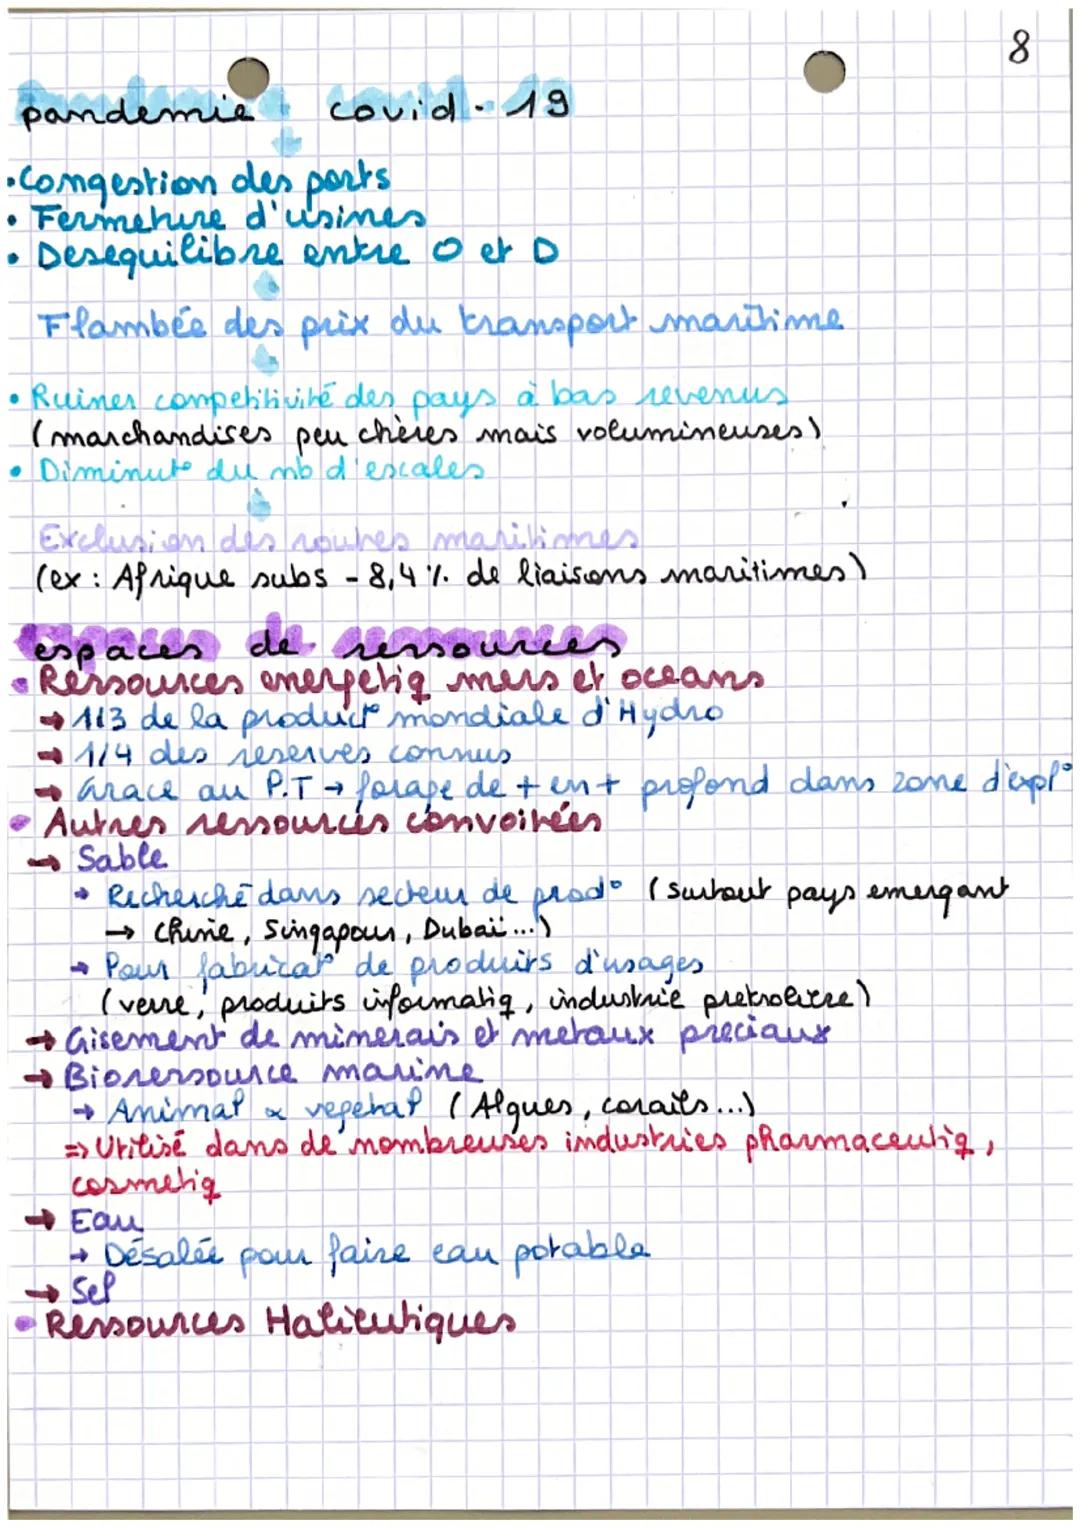 8
pandemie covid-19
• Congestion des ports
• Fermeture d'usines
• Desequilibre entre O et D
Flambée des prix du transport maritime
• Ruiner competitivité des pays à bas revenus
(marchandises peu chères mais volumineuses)
• Diminut° du nb d'escales
Exclusion des routes maritimes
(ex : Afrique subs - 8,4 % de liaisons maritimes)
espaces de ressources
• Ressources energetiq mers et oceans
→ 1/3 de la product° mondiale d'Hydro
→ 1/4 des reserves connus
→ Grace au P.T → forage de + en + profond dans zone d'expl°
• Autres ressources convoitées
→ Sable
→ Recherché dans secteur de prod° (surtout pays emergant
→ Chine, Singapour, Dubaï ...)
→ Pour fabricat° de produits d'usages
(verre, produits informatiq, industrie pretroliere)
→ Gisement de minerais et metaux preciaux
→ Bioressource marine
→ Animal & vegetal (Algues, corails ...)
=> Utilisé dans de nombreuses industries pharmaceutiq,
cosmetiq
→ Eau
→ Désalée pour faire eau potable
→ Sel
• Ressources Halieutiques